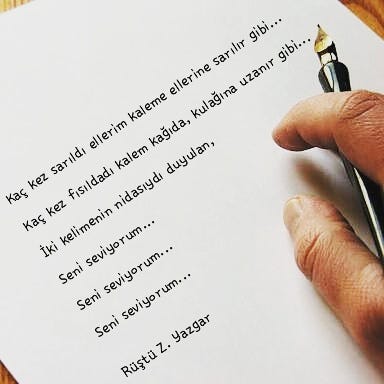 Kaç kez sarıldı ellerim kaleme ellerine sarılır gibi...
Kaç kez fısıldadı kalem kağıda, kulağına uzanır gibi...
İki kelimenin nidasıydı duyulan,
Seni seviyorum...
Seni seviyorum...
Seni seviyorum...
Rüştü Z. Yazgar